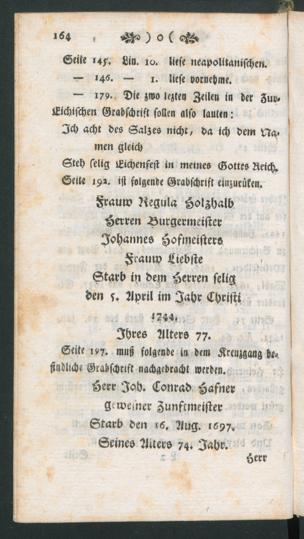 164 ) o (
Seite 145. Lin. 10. liese neapolitanischen.
— 146. — 1. liese vornehme.
— 179. Die zwo lezten Zeilen in der Zur-
Eichischen Grabschrift sollen also lauten:
Ich acht des Salzes nicht, da ich dem Na-
men gleich
Steh selig Eichenfest in meines Gottes Reich.
Seite 192. ist folgende Grabschrift einzurüken.
Frauw Regula Holzhalb
Herren Burgermeister
Johannes Hofmeisters
Frauw Liebste
Starb in dem Herren selig
den 5. April im Jahr Christi
1744.
Ihres Alters 77.
Seite 197. muß folgende in dem Kreuzgang be-
findliche Grabschrift nachgebracht werden.
Herr Joh. Conrad Hafner
geweßner Zunftmeister
Starb den 16. Aug. 1697.
Seines Alters 74. Jahr.
Herr